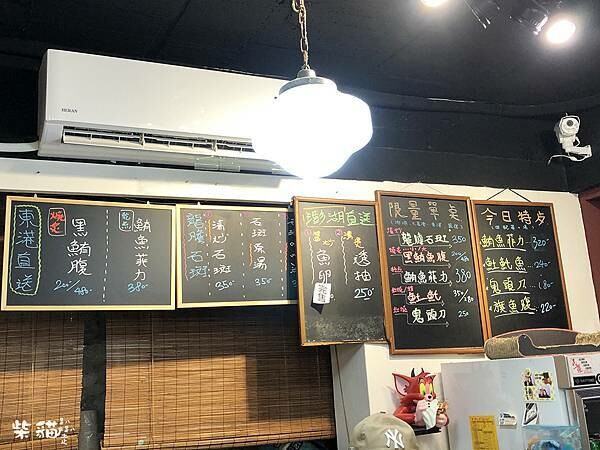 HERAN
東港直送
炙燒
黑鮪腹
200/480
乾煎
鮪魚菲力
380
龍膽石斑
清炒石斑
350
石斑魚湯
350
澎湖直送
魚卵
完售
透抽
250
限量單点
龍膽石斑 350
黑鮪魚腹
鮪魚菲力 380
魟魠 35/180
鬼頭刀 250
今日特点
鮪魚菲力 320
魟魠魚 240
鬼頭刀 180
旗魚腹 220
NY
柴貓趴趴走